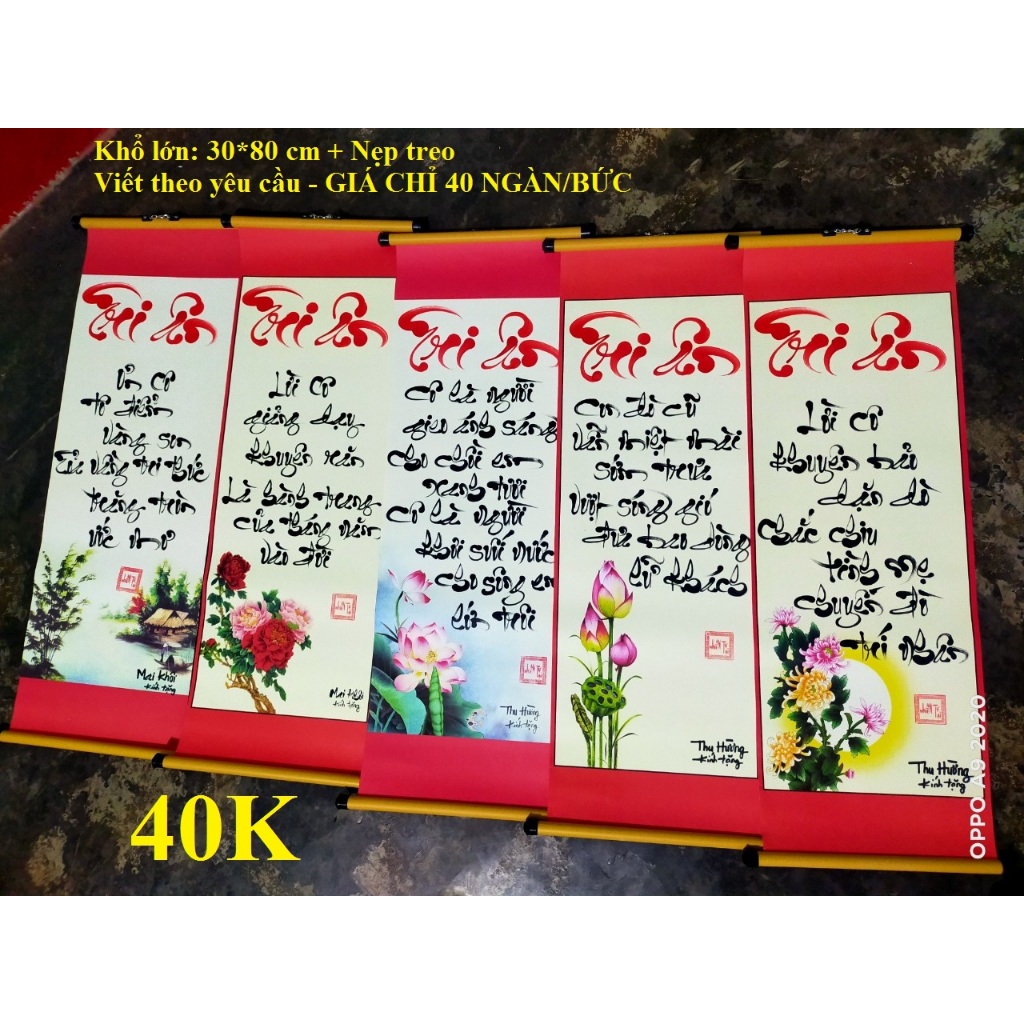 Khổ lớn: 30*80 cm + Nẹp treo
Viết theo yêu cầu - GIÁ CHỈ 40 NGÀN/BỨC
Tri Ân
Ơn cô
tô điểm
vàng son
Của vầng tri thức
trăng tròn
ước mơ
Mai Khôi
kính tặng
Tri Ân
Lời cô
giảng dạy
khuyên răn
Là hành trang
của tháng năm
vào đời
Mai Khôi
kính tặng
Tri Ân
Cô là người
gieo ánh sáng
cho chồi em
xanh tươi
Cô là người
khơi suối nước
cho sông em
lớn trôi
Thu Hường
kính tặng
Tri Ân
Con đò cũ
vẫn miệt mài
sớm trưa
vượt sóng gió
đưa bao dòng
lữ khách
Thu Hường
kính tặng
Tri Ân
Lời cô
khuyên bảo
dặn dò
Chắc chiu
từng mẹ
chuyến đò
trí nhân
Thu Hường
kính tặng
40K
OPPO A9 2020